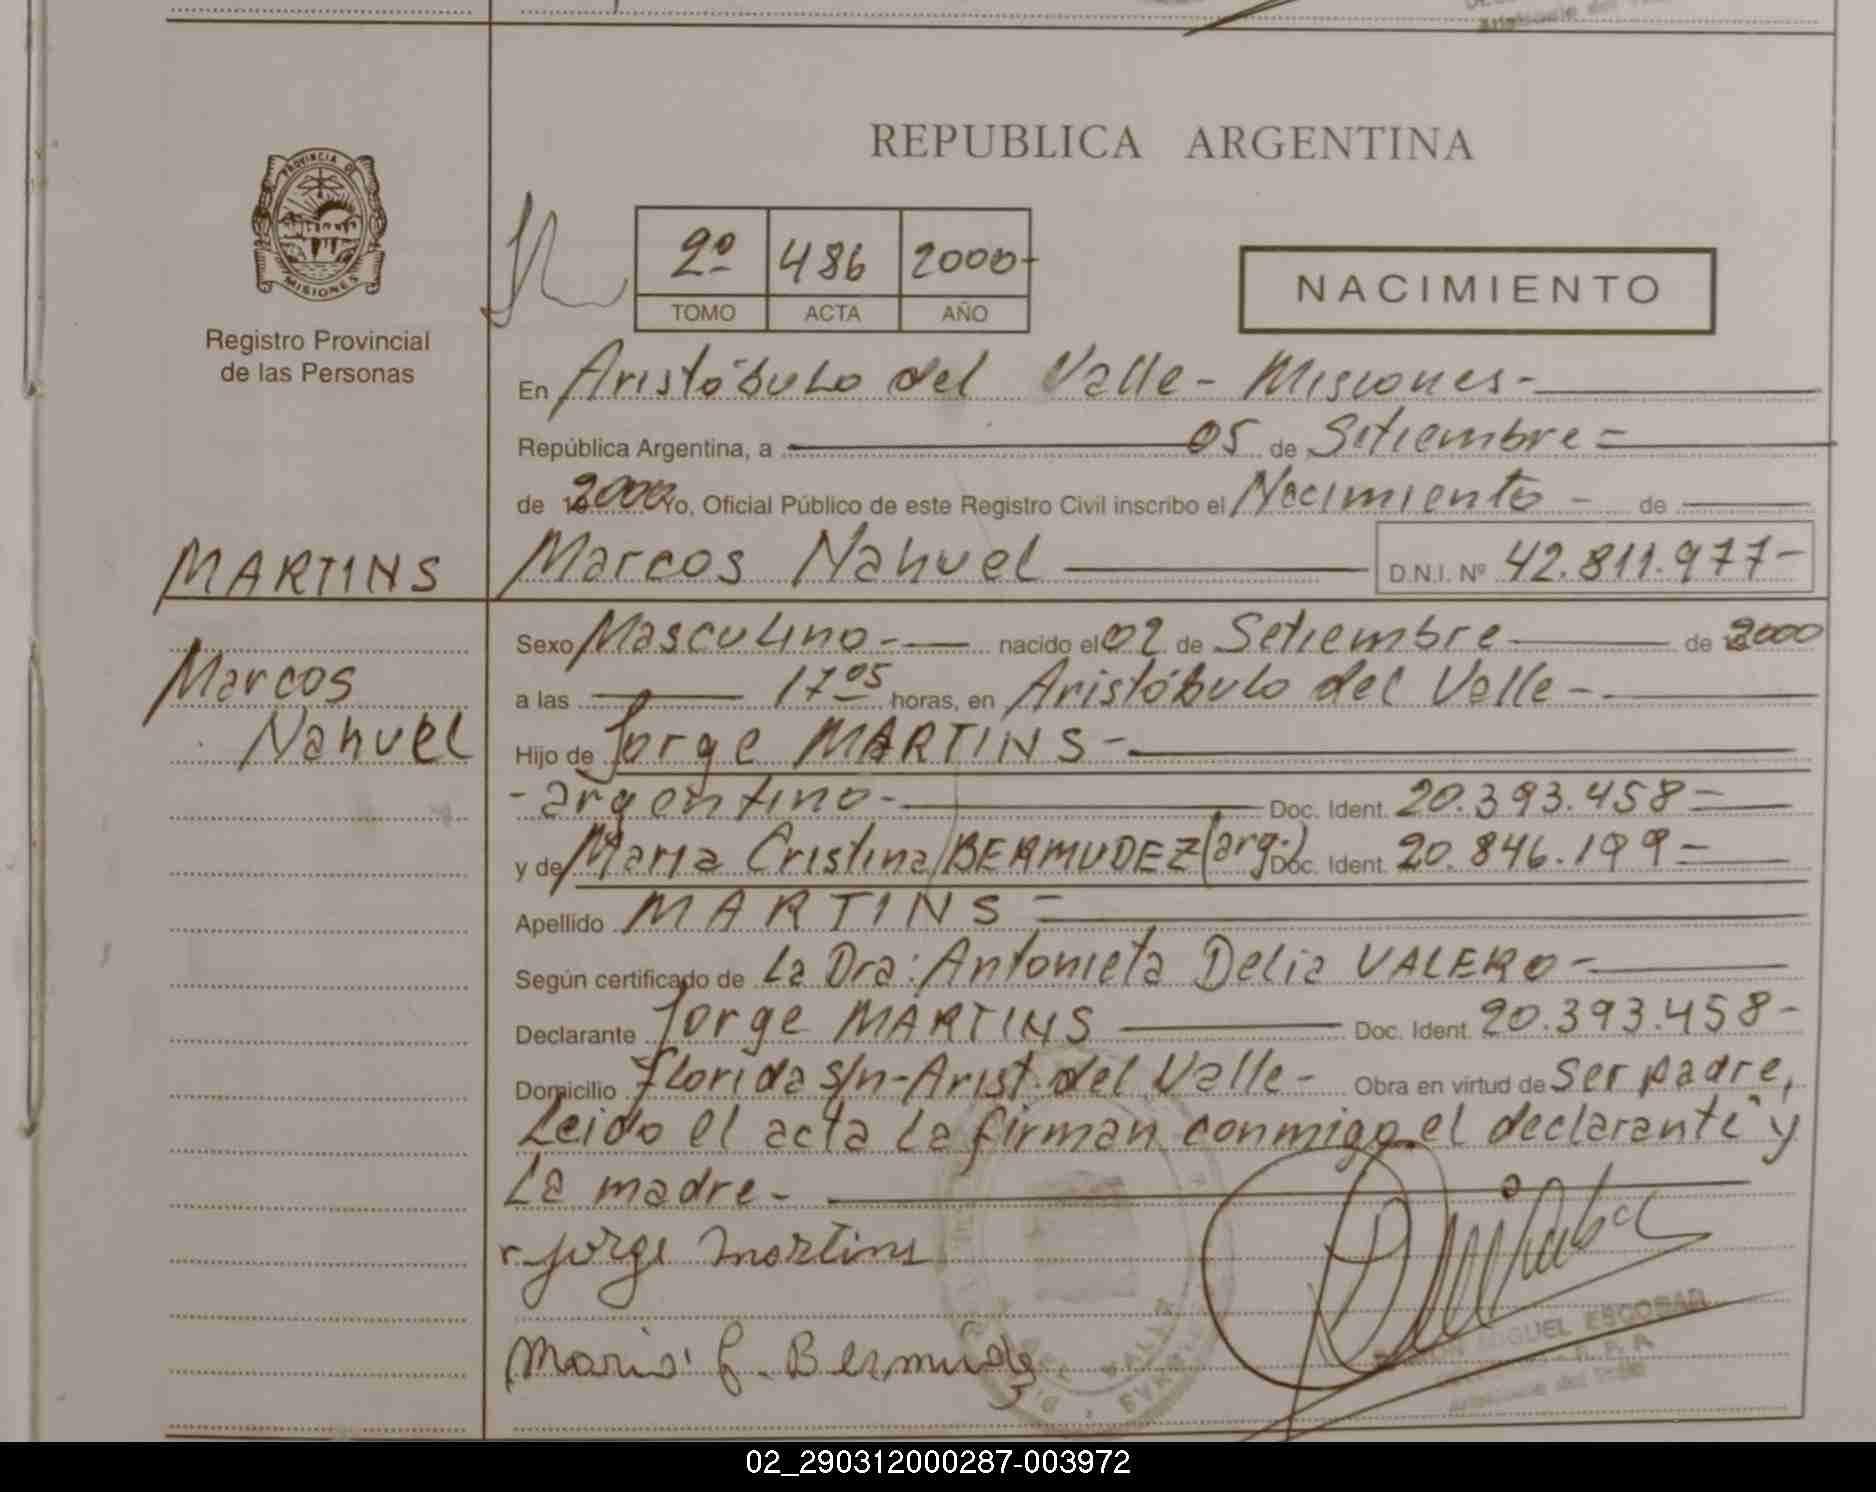 REPUBLICA ARGENTINA
PROVINCIA DE
MISIONES
Registro Provincial
de las Personas
2º 486 2000-
TOMO ACTA AÑO
NACIMIENTO
En Aristóbulo del Valle - Misiones -
República Argentina, a 05 de Setiembre =
de 2000 Yo, Oficial Público de este Registro Civil inscribo el Nacimiento - de
MARTINS Marcos Nahuel D.N.I. Nº 42.811.977-
Marcos
Nahuel
Sexo Masculino- nacido el 02 de Setiembre de 2000
a las 17 05 horas, en Aristóbulo del Valle -
Hijo de Jorge MARTINS -
- argentino - Doc. Ident. 20.393.458 =
y de Maria Cristina BERMUDEZ (arg.) Doc. Ident. 20.846.199 =
Apellido MARTINS =
Según certificado de La Dra: Antonieta Delia VALERO -
Declarante Jorge MARTINS Doc. Ident. 20.393.458-
Domicilio Florida s/n - Arist. del Valle - Obra en virtud de ser padre,
Leido el acta la firman conmigo el declarante y
La madre -
Jorge Martins
Maria C. Bermudez
MIGUEL ESCOBAR
02_290312000287-003972